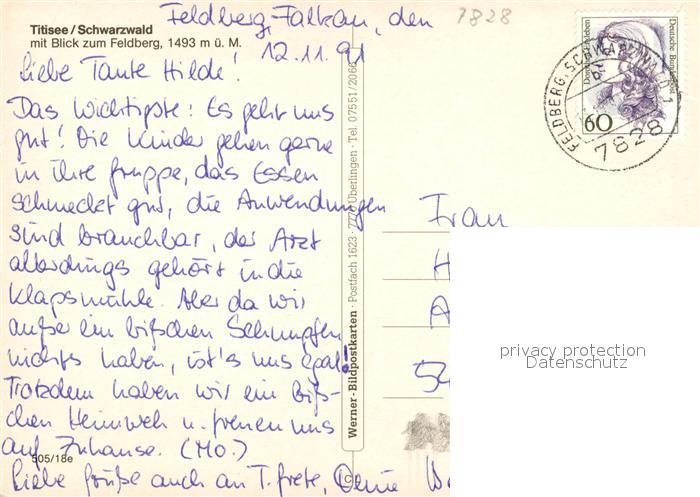 Titisee / Schwarzwald
mit Blick zum Feldberg, 1493 m ü. M.
Feldberg-Falkau, den
12.11.91
7828
Liebe Tante Hilde!
Das Wichtigste: Es geht uns
gut! Die Kinder gehen gerne
in ihre Gruppe, das Essen
schmeckt gut, die Anwendungen
sind brauchbar, der Arzt
allerdings gehört in die
Klapsmühle. Aber da wir
außer ein bißchen Schnupfen
nichts haben, ist's uns egal!
Trotzdem haben wir ein biß-
chen Heimweh u. freuen uns
auf Zuhause. (Mo.)
Liebe Grüße auch an T. Grete, Deine
505/18e
Werner-Bildpostkarten · Postfach 1623 · 7770 Überlingen · Tel. 07551/2060
©
Frau
H
A
54
Deutsche Bundespost
60
FELDBERG, SCHWARZWALD 1
7828
privacy protection
Datenschutz